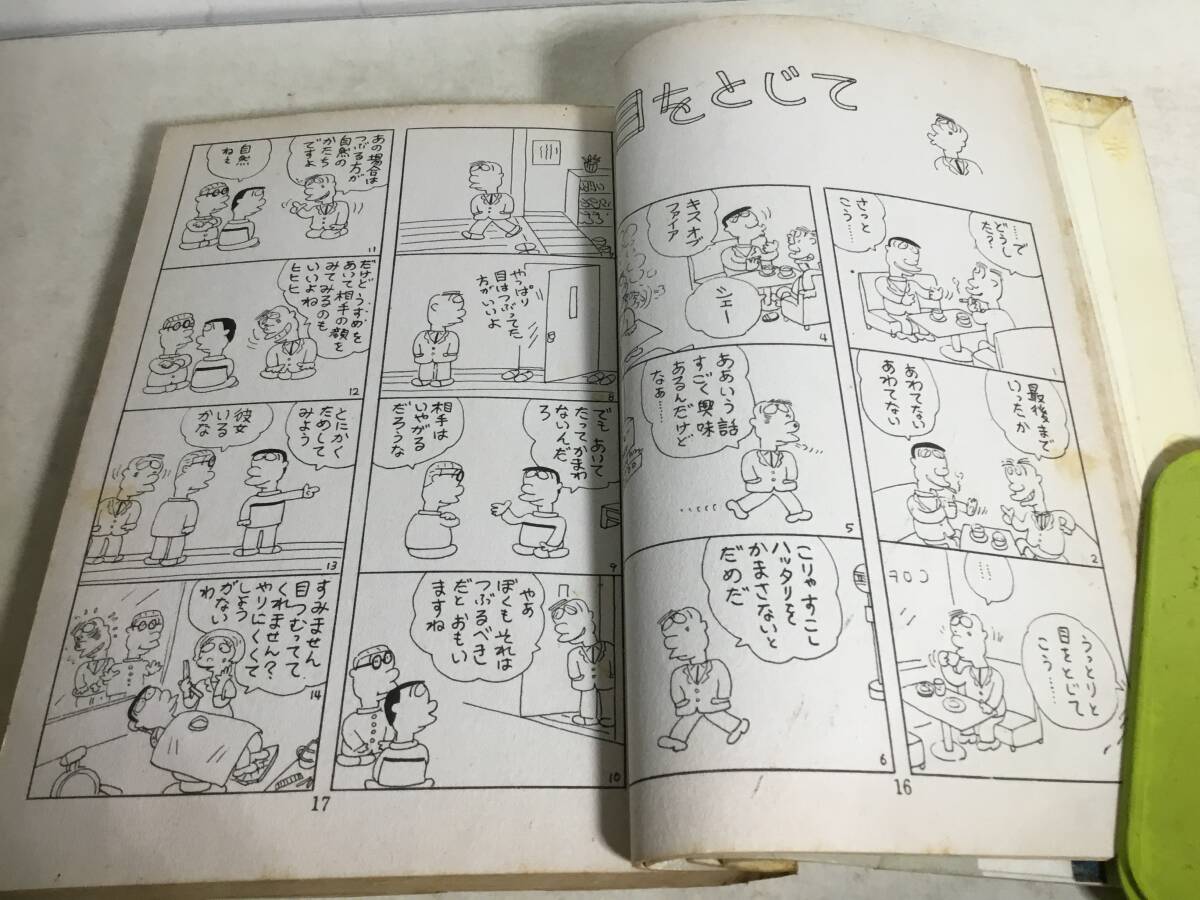 目をとじて
……で
どうし
た?
さっと
こう……
1
最後まで
いったか
あわてない
あわてない
2
COF
…
うっとりと
目をとじて
こう……
キス オブ
ファイア
シェー
4
ああいう話
すごく興味
あるんだけど
なぁ……
5
こりゃすこし
ハッタリを
かまさないと
だめだ
6
16
やっぱり
目はつぶってた
方がいいよ
8
でも あいて
たってかまわ
ないんだ
ろ
相手は
いやがる
だろうな
9
やあ
ぼくも それは
つぶるべき
だと おもい
ますね
10
あの場合は
つぶる方が
自然の
かたち
ですよ
自然
ねぇ
11
だけど うすめを
あいて相手の顔を
みてみるのも
いいよね
ヒヒ
12
とにかく
ためして
みよう
彼女
いる
かな
13
すみません
目つむってて
くれません?
やりにくくて
しょう
がない
わ
14
17